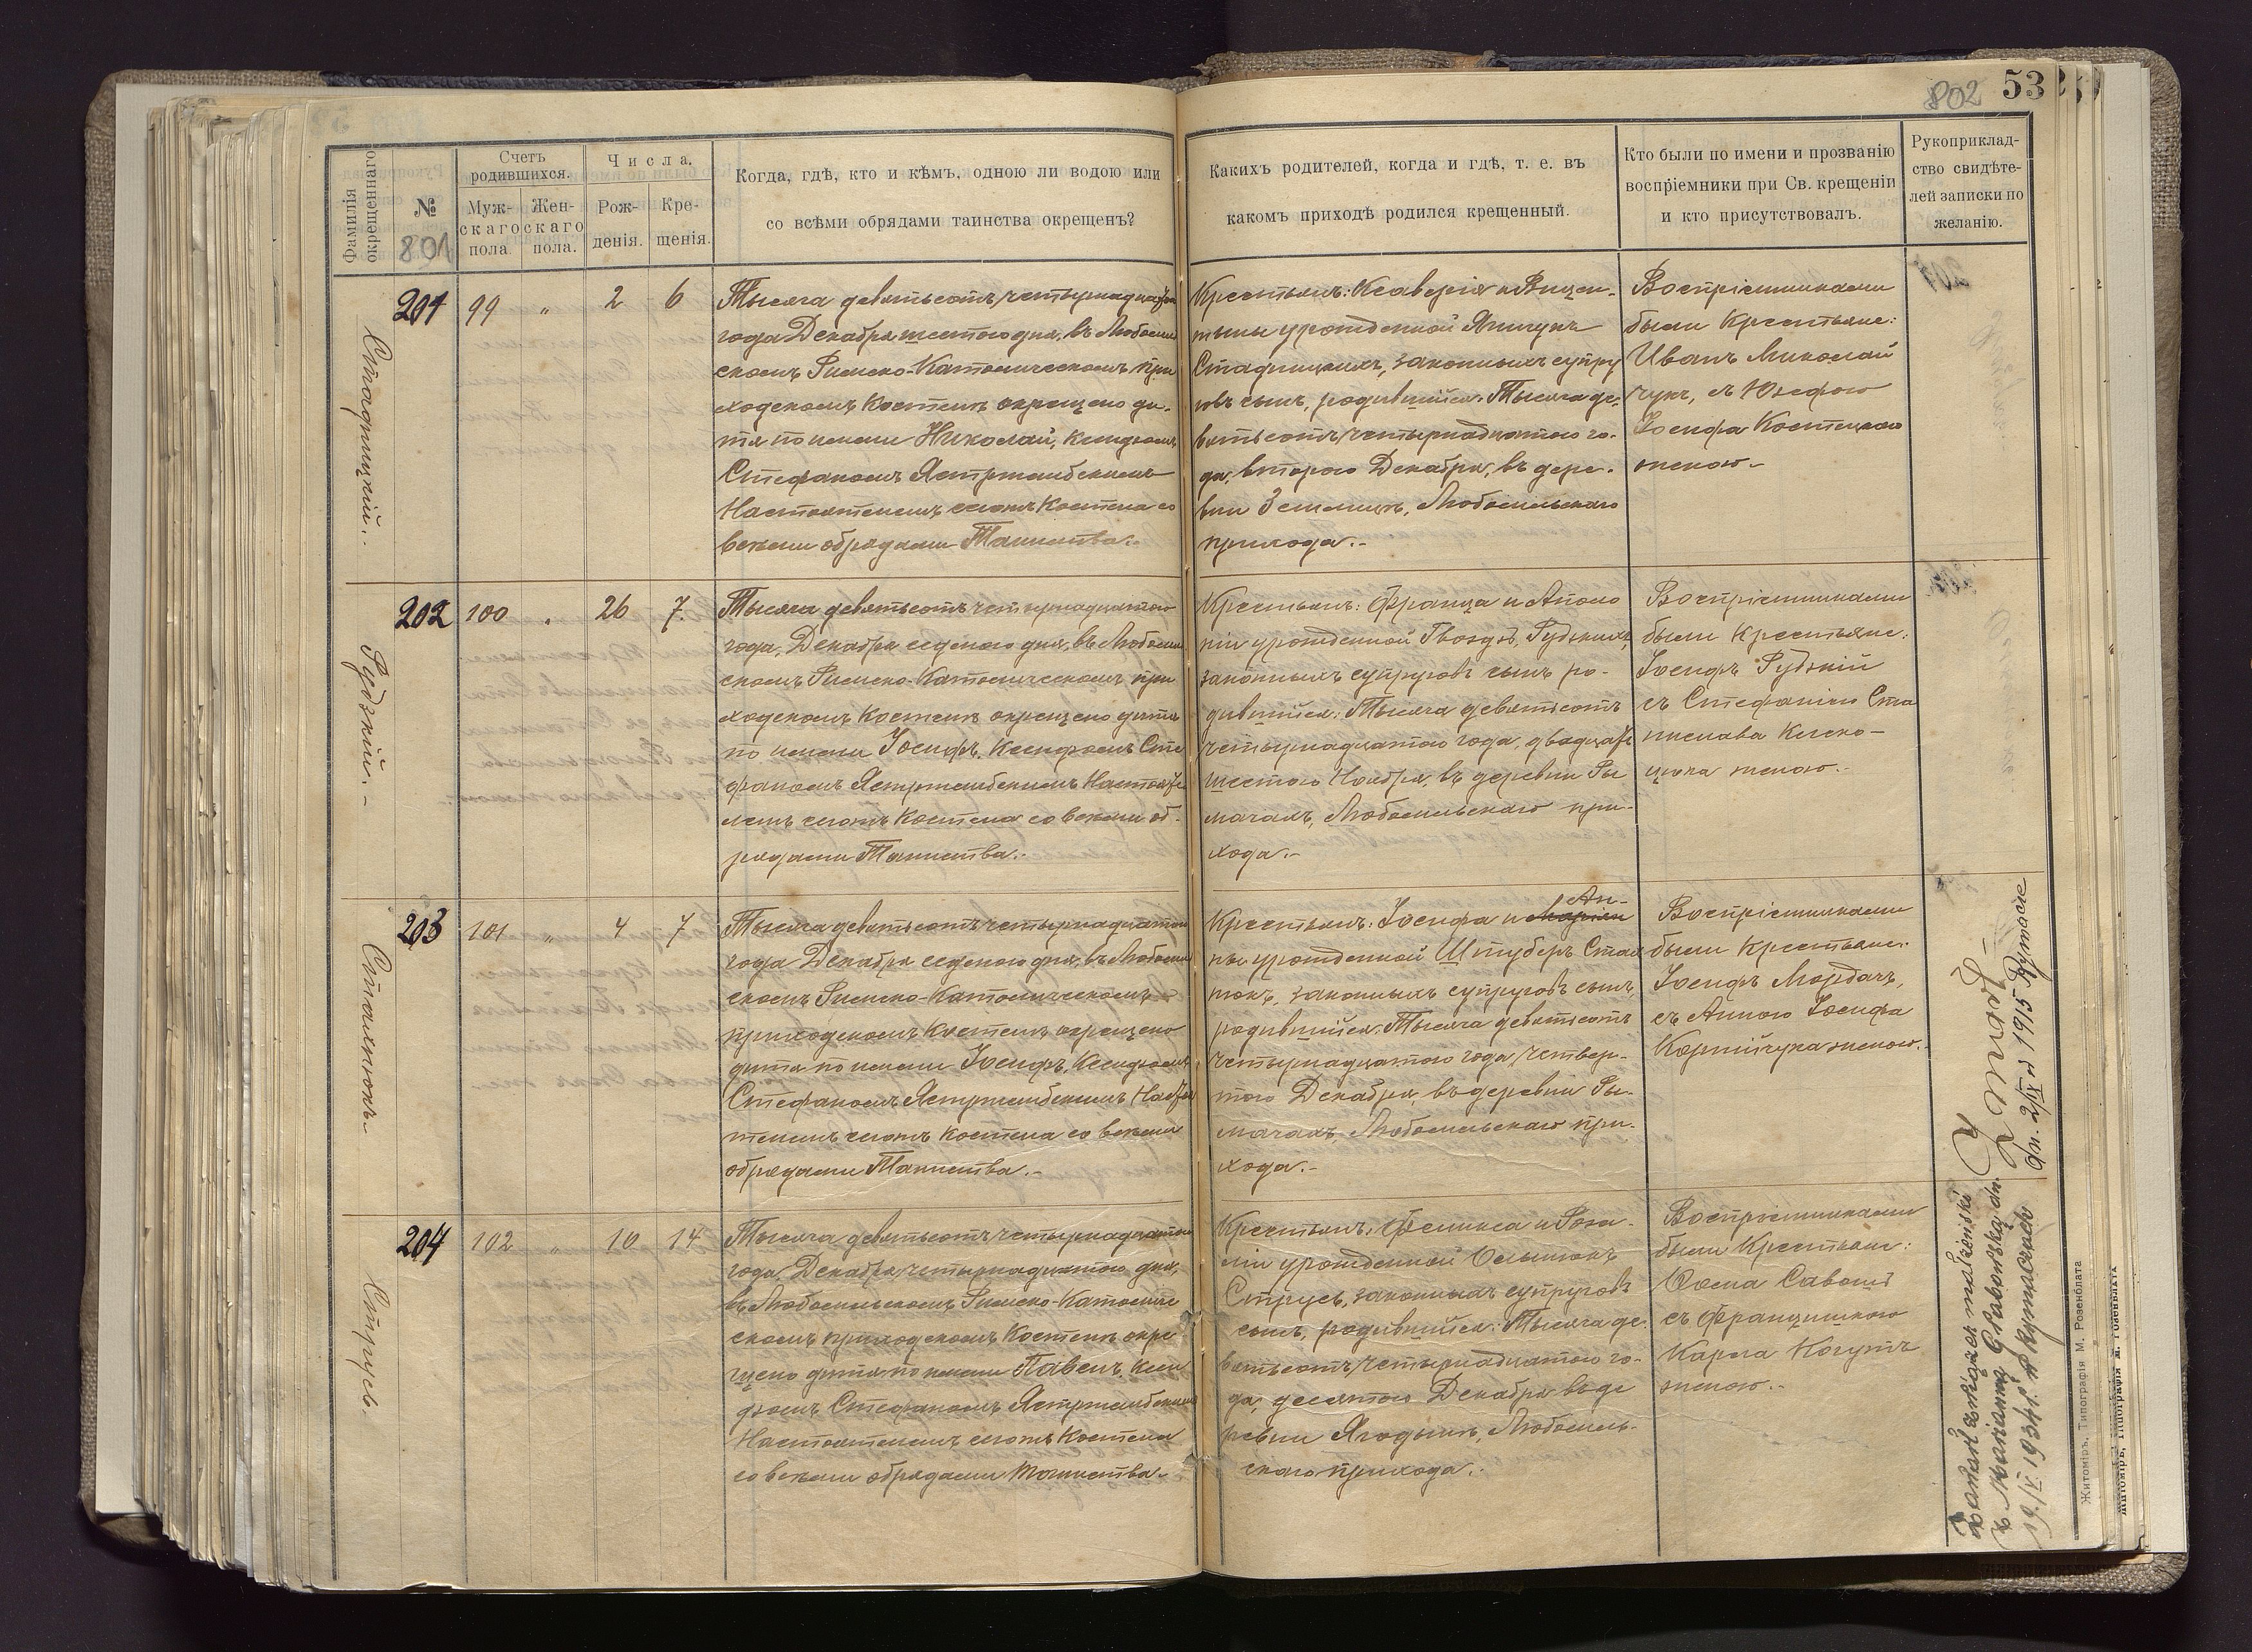 802
53
Фамилія окрещеннаго
№
801
Счетъ родившихся.
Мужскаго пола
Женскаго пола.
Числа.
Рожденія.
Крещенія.
Когда, гдѣ, кто и кѣмъ, одною ли водою или
со всѣми обрядами таинства окрещенъ?
Какихъ родителей, когда и гдѣ, т. е. въ
какомъ приходѣ родился крещенный.
Кто были по имени и прозванію
воспріемники при Св. крещеніи
и кто присутствовалъ.
Рукоприклад-
ство свидѣте-
лей записки по
желанію.
Стадницкій.-
201
99
"
2
6
Тысяча девятьсотъ четырнадцатаго
года Декабря шестого дня, въ Любомль
скомъ Римско-Католическомъ при
ходскомъ Костелѣ окрещено ди-
тя по имени Николай, Ксендзомъ
Стефаномъ Ястржембскимъ
Настоятелемъ сего Костела со
всѣми обрядами Таинства.-
Крестьянъ: Ксаверія и Винцен-
тыны урожденной Янчукъ
Стадницкихъ, законныхъ супру
говъ сынъ, родившійся: Тысяча де-
вятьсотъ четырнадцатого го-
да, второго Декабря, въ дере-
вни Землицѣ, Любомльскаго
прихода.-
Воспріемниками
были Крестьяне:
Иванъ Миколай
чукъ, съ Юзефою
Іосифа Костецкого
женою.-
Рудзкій.-
202
100
"
26
7.
Тысяча девятьсотъ четырнадцатого
года, Декабря седьмого дня, въ Любомль
скомъ Римско-Католическомъ при
ходскомъ Костелѣ окрещено дитя
по имени Іосифъ, Ксендзомъ Сте
фаномъ Ястржембскимъ Настояте
лемъ сего Костела со всѣми об-
рядами Таинства.-
Крестьянъ: Франца и Аполо
ніи урожденной Гвоздь, Рудзкихъ,
законныхъ супруговъ сынъ ро-
дившійся: Тысяча девятьсотъ
четырнадцатого года, двадцать
шестого Ноября, въ деревни Ры
мачахъ, Любомльскаго при-
хода.-
Воспріемниками
были Крестьяне:
Іосифъ Рудзкій
съ Стефаніею Ста
нислава Клеко-
цюка женою.-
Сталюкъ.-
203
101
"
4
7
Тысяча девятьсотъ четырнадцатого
года Декабря седьмого дня, въ Любомль
скомъ Римско-Католическомъ
приходскомъ Костелѣ окрещено
дитя по имени Іосифъ, Ксендзомъ
Стефаномъ Ястржембскимъ Настоя
телемъ сего Костела со всѣми
обрядами Таинства.-
Ан-
Крестьянъ: Іосифа и Маріян
ны урожденной Штуберъ Сталю
говъ, законныхъ супруговъ сынъ,
родившійся: Тысяча девятьсотъ
четырнадцатого года, четвер-
того Декабря, въ деревни Ры-
мачахъ, Любомльскаго при-
хода.-
Воспріемниками
были Крестьяне:
Іосифъ Мордачъ,
съ Анною Іосифа
Корнійчука женою.
Zmarł
dn. 2/IX 1915 Rymacze
Струсь.
204
102
"
10
14
Тысяча девятьсотъ четырнадцатого
года, Декабря четырнадцатого дня,
въ Любомльскомъ Римско-Католиче
скомъ приходскомъ Костелѣ окре
щено дитя по имени Павелъ, Ксен
дзомъ Стефаномъ Ястржембскимъ
Настоятелемъ сего Костела
со всѣми обрядами Таинства.-
Крестьянъ: Феликса и Роза-
ліи урожденной Ольшакъ
Струсь, законныхъ супруговъ
сынъ, родившійся: Тысяча де-
вятьсотъ четырнадцатого го-
да, десятого Декабря въ де
ревни Ягодынѣ, Любомль-
скаго прихода.-
Воспріемниками
были Крестьяне:
Фома Савошъ
съ Францишкою
Карла Когутъ
женою.-
Zawarł związek małżeński
z Marianną Grabowską dn.
19.IV.1934 r. w Rymaczach
Житоміръ, Типографія М. Розенблата
Житоміръ, Типографія М. Розенблата